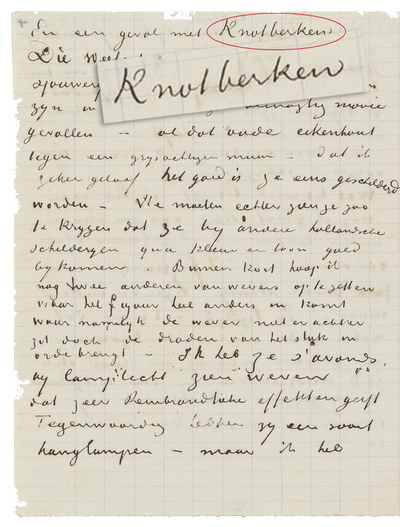 En een geval met Knotberken
Die
Knotberken
zyn mooie
gevallen – al dat oude eikenhout
tegen een grysachtigen muur – dat ik
zeker geloof het goed is ze eens geschilderd
worden – We moeten echter zien ze zoo
te krygen dat ze by andere hollandsche
schilderyen qua kleur en toon goed
bykomen. Binnen kort hoop ik
nog twee anderen van wevers op te zetten
waar het figuur heel anders in komt
waar namelyk de wever niet er achter
zit doch de draden van het stuk in
orde brengt – Ik heb ze s'avonds
by lamplicht zien weven
dat zeer Rembrandtieke effekten geeft
Tegenwoordig hebben zy een soort
hanglampen – maar ik heb